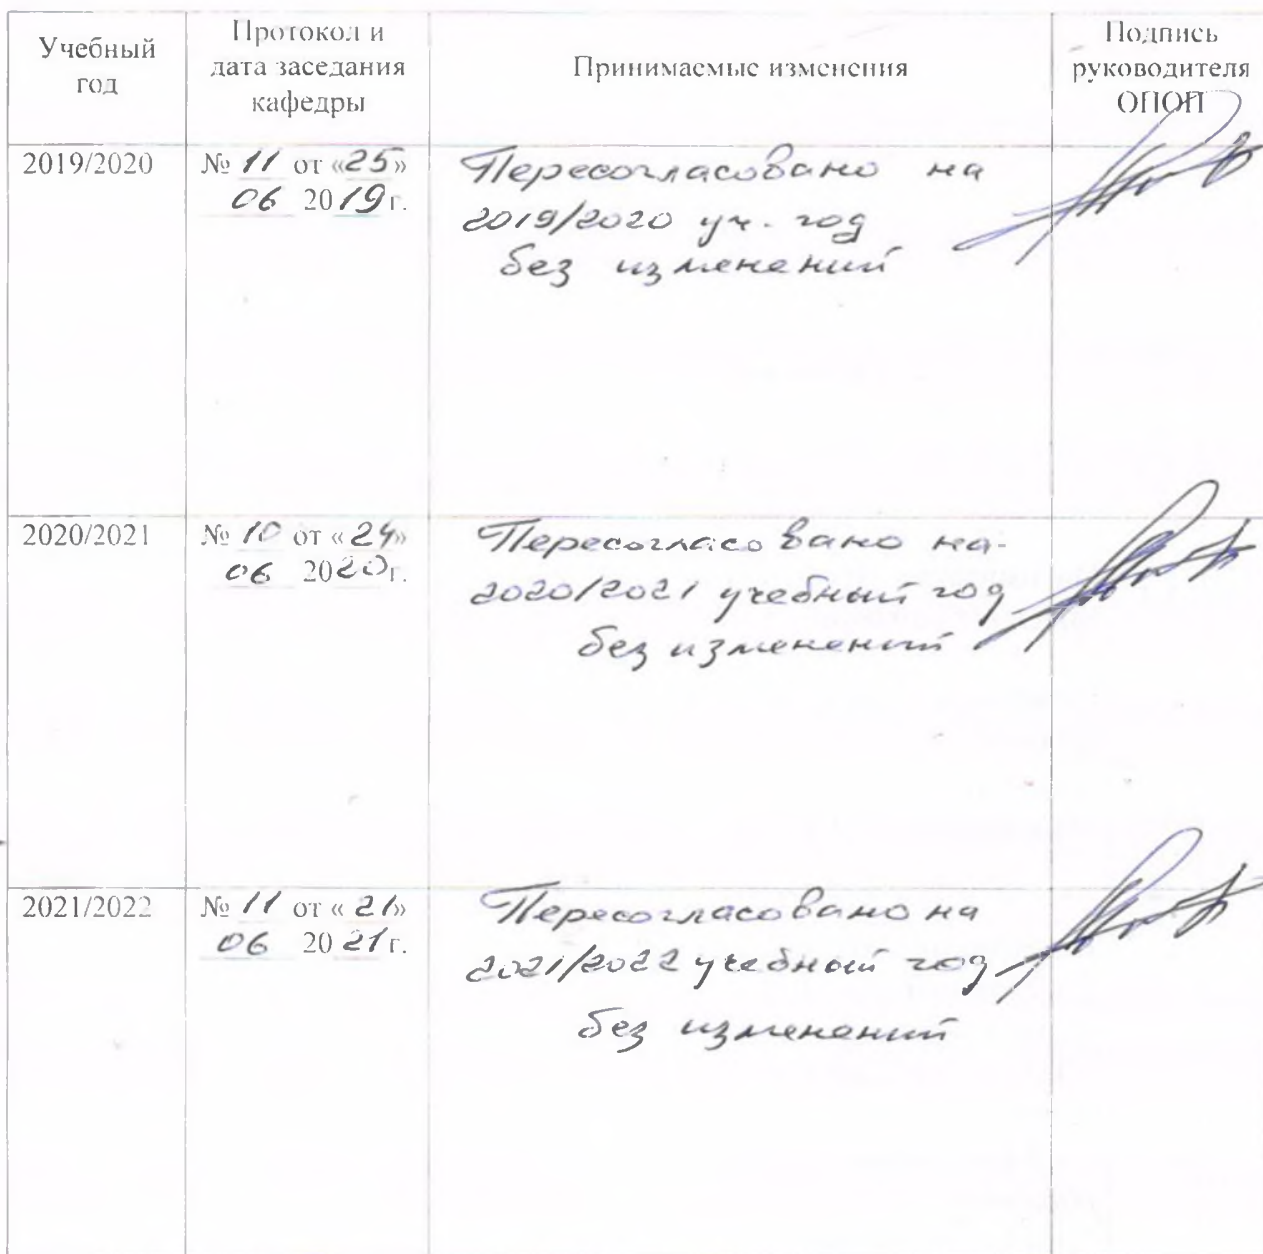 Учебный
год
Протокол и
дата заседания
кафедры
Принимаемые изменения
Подпись
руководителя
ОПОП
2019/2020
№ 11 от «25»
06 2019 г.
Пересогласовано на
2019/2020 уч. год
без изменений
2020/2021
№ 10 от «24»
06 2020 г.
Пересогласовано на
2020/2021 учебный год
без изменений
2021/2022
№ 11 от «21»
06 2021 г.
Пересогласовано на
2021/2022 учебный год
без изменений